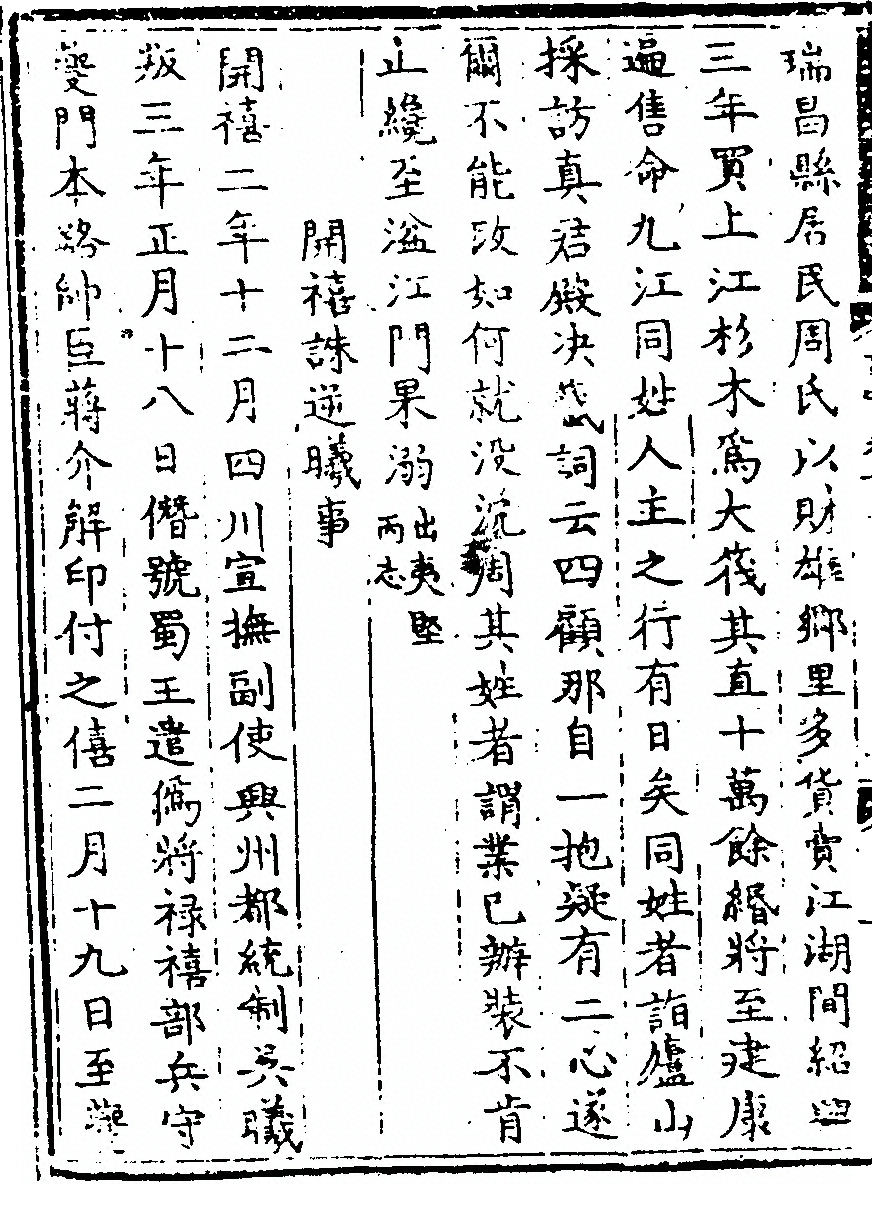 瑞昌縣居民周氏以財雄鄉里多貨賣江湖間紹興
三年買上江杉木為大筏其直十萬餘緡將至建康
遍售命九江同姓人主之行有日矣同姓者詣廬山
採訪真君殿决籤詞云四顧那自一抱疑有二心遂
爾不能改如何就没沉周其姓者謂業已辦裝不肯
止纔至湓江門果溺出夷堅丙志
開禧誅逆曦事
開禧二年十二月四川宣撫副使興州都統制吳曦
叛三年正月十八日僭號蜀王遣偽將禄禧部兵守
夔門本路帥臣蔣介解印付之僖二月十九日至